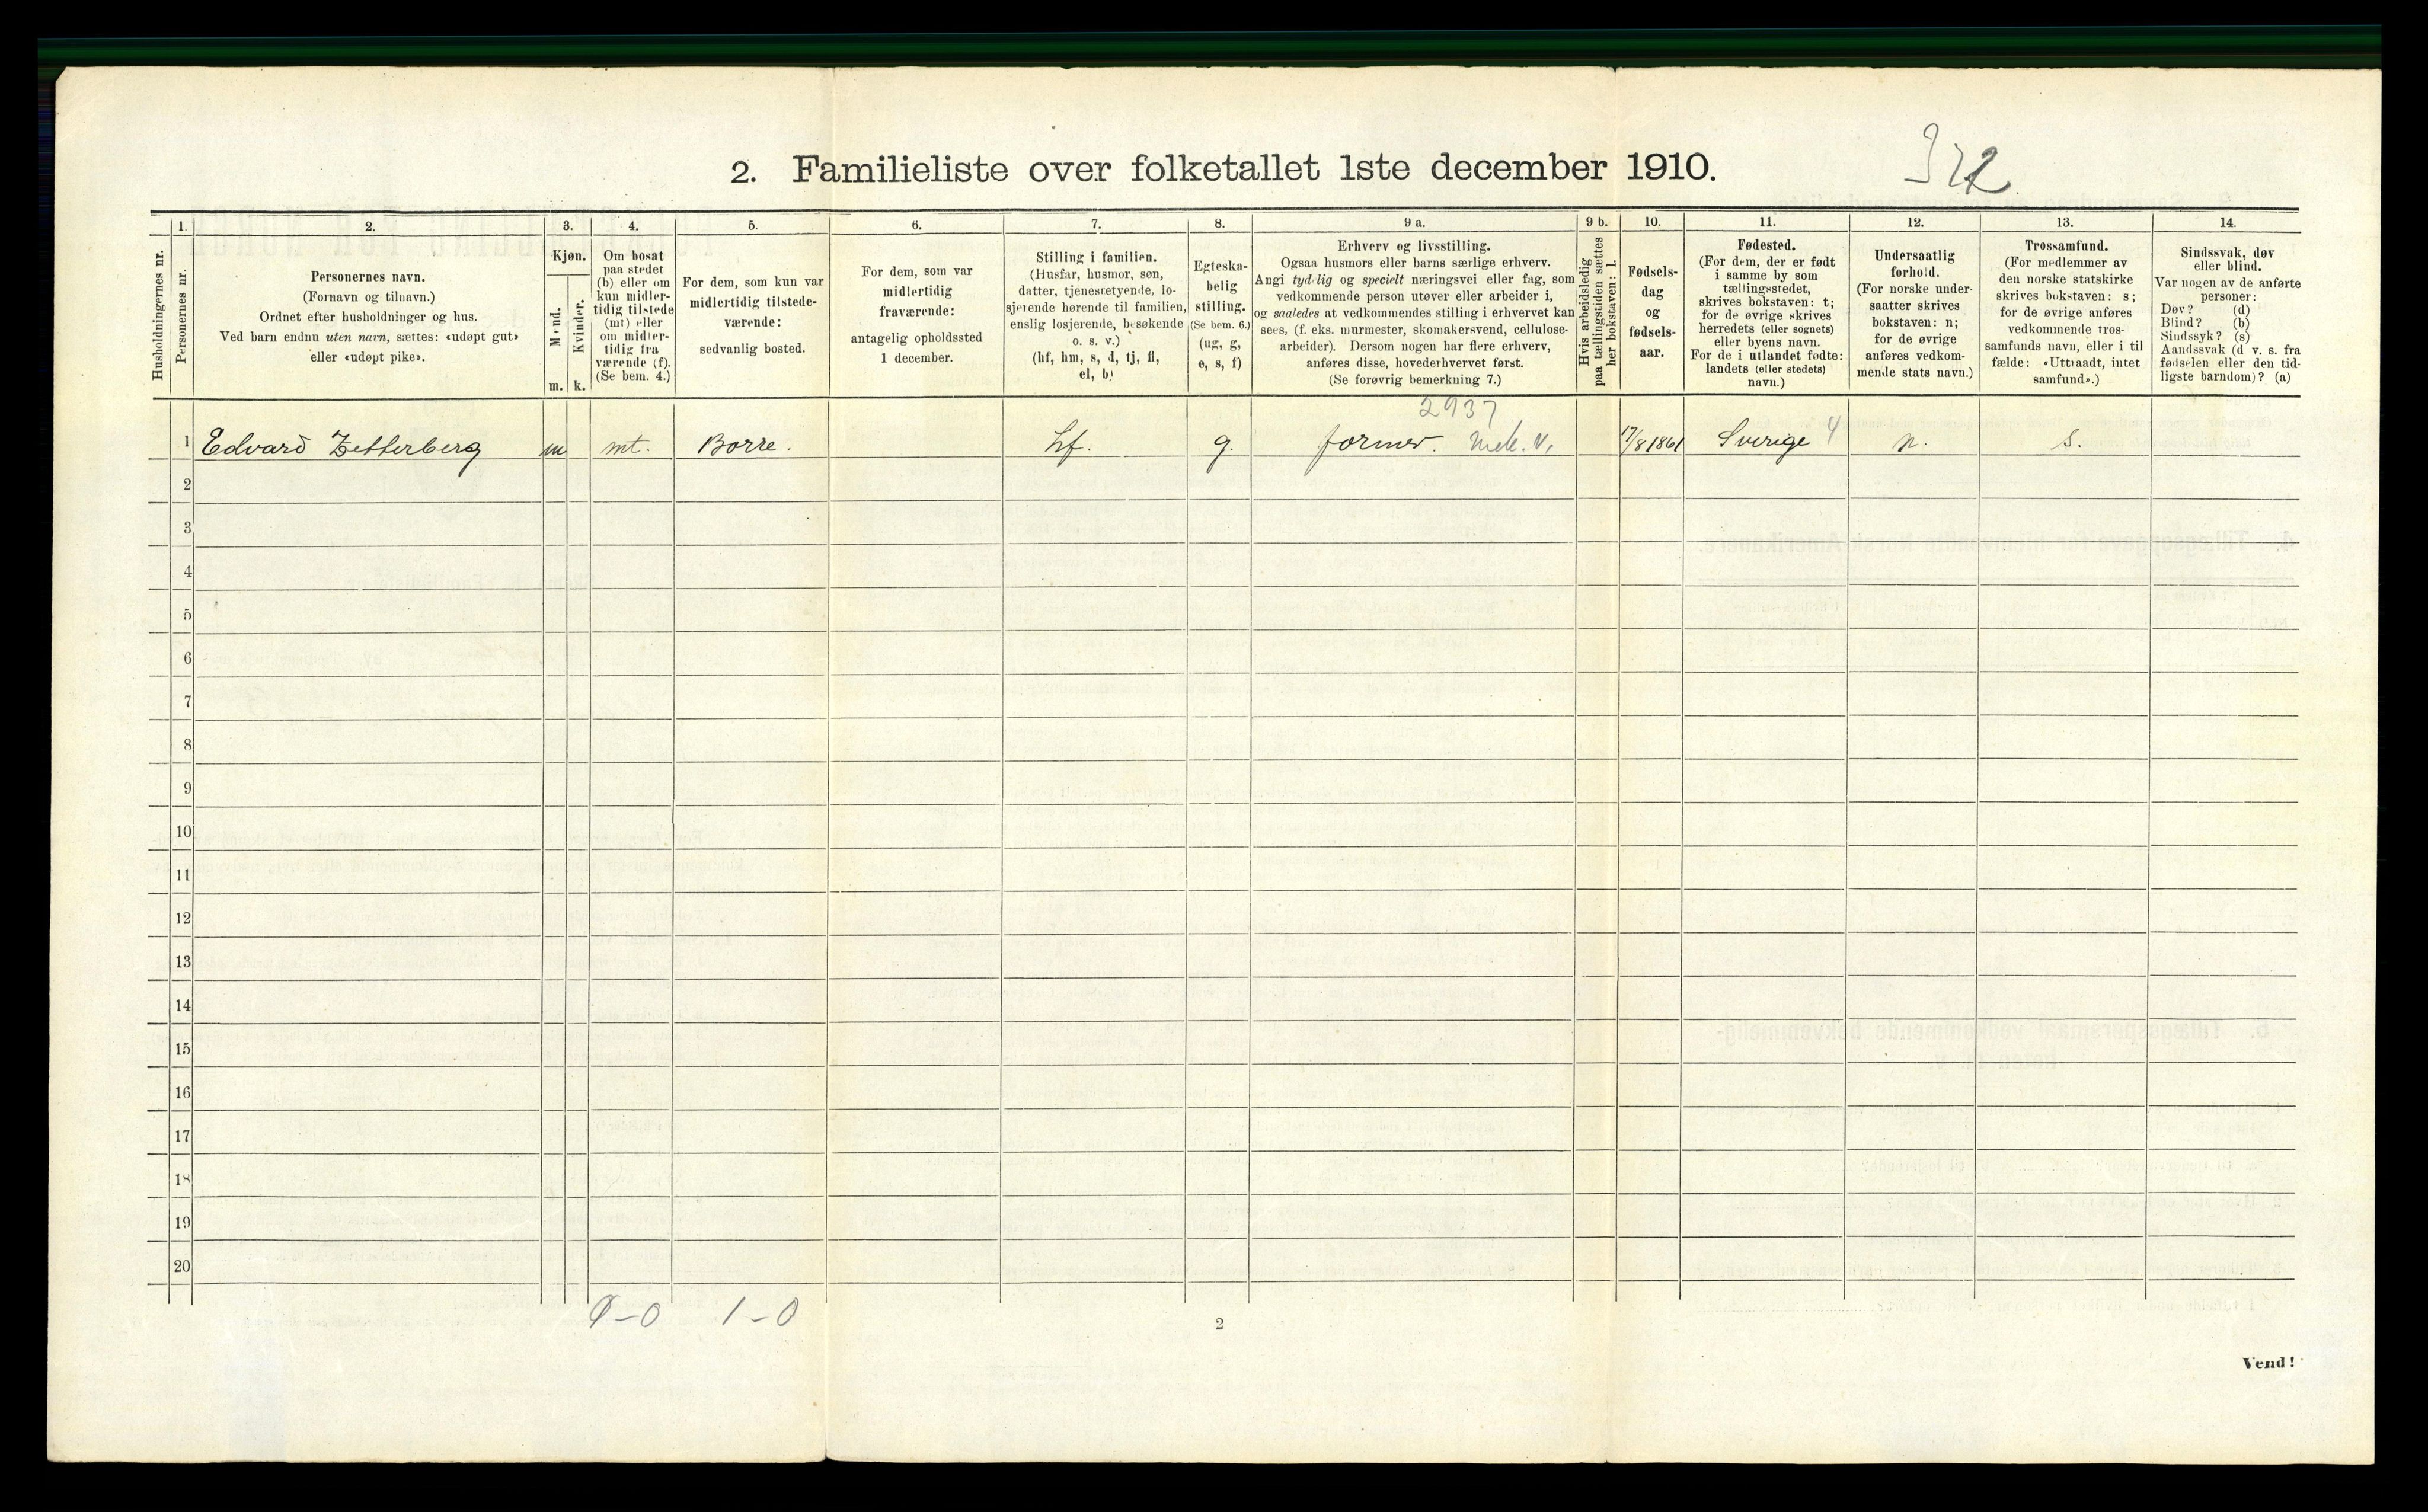 2. Familieliste over folketallet 1ste december 1910.
322
Husholdningernes nr.
1.
Personernes nr.
2.
Personernes navn.
(Fornavn og tilnavn.)
Ordnet efter husholdninger og hus.
Ved barn endnu uten navn, sættes: «udøpt gut»
eller «udøpt pike».
3.
Kjøn.
Mænd.
Kvinder.
m. k.
4.
Om bosat
paa stedet
(b) eller om
kun midler-
tidig tilstede
(mt) eller
om midler-
tidig fra
værende (f).
(Se bem. 4.)
5.
For dem, som kun var
midlertidig tilstede-
værende:
sedvanlig bosted.
6.
For dem, som var
midlertidig
fraværende:
antagelig opholdssted
1 december.
7.
Stilling i familien.
(Husfar, husmor, søn,
datter, tjenestetyende, lo-
sjerende hørende til familien,
enslig losjerende, besøkende
o. s. v.)
(hf, hm, s, d, tj, fl,
el, b)
8.
Egteska-
belig
stilling.
(Se bem. 6.)
(ug, g,
e, s, f)
9 a.
Erhverv og livsstilling.
Ogsaa husmors eller barns særlige erhverv.
Angi tydelig og specielt næringsvei eller fag, som
vedkommende person utøver eller arbeider i,
og saaledes at vedkommendes stilling i erhvervet kan
sees, (f. eks. murmester, skomakersvend, cellulose-
arbeider). Dersom nogen har flere erhverv,
anføres disse, hovederhvervet først.
(Se forøvrig bemerkning 7.)
9 b.
Hvis arbeidsledig
paa tællingstiden sættes
her bokstaven: l.
10.
Fødsels-
dag
og
fødsels-
aar.
11.
Fødested.
(For dem, der er født
i samme by som
tællingsstedet,
skrives bokstaven: t;
for de øvrige skrives
herredets (eller sognets)
eller byens navn.
For de i utlandet fødte:
landets (eller stedets)
navn.)
12.
Undersaatlig
forhold.
(For norske under-
saatter skrives
bokstaven: n;
for de øvrige
anføres vedkom-
mende stats navn.)
13.
Trossamfund.
(For medlemmer av
den norske statskirke
skrives bokstaven: s;
for de øvrige anføres
vedkommende tros-
samfunds navn, eller i til
fælde: «Uttraadt, intet
samfund».)
14.
Sindssvak, døv
eller blind.
Var nogen av de anførte
personer:
Døv? (d)
Blind? (b)
Sindssyk? (s)
Aandssvak (d v. s. fra
fødselen eller den tid-
ligste barndom)? (a)
2937
1 Edvard Zetterberg m mt. Borre. hf. g. former. Mek. V. 17/8 1861 Sverige 4 n. s.
2
3
4
5
6
7
8
9
10
11
12
13
14
15
16
17
18
19
20
0-0 1-0
2
Vend!